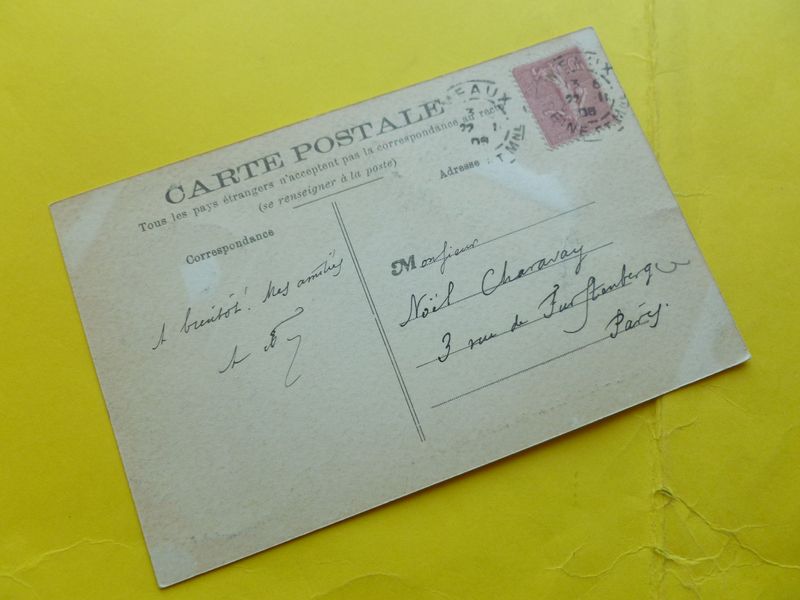 CARTE POSTALE
Tous les pays étrangers n'acceptent pas la correspondance au recto
(se renseigner à la poste)
Correspondance
Adresse :
A bientôt! Mes amitiés
Monsieur
Noël Charavay
3 rue de Furstenberg
Paris.
MEAUX